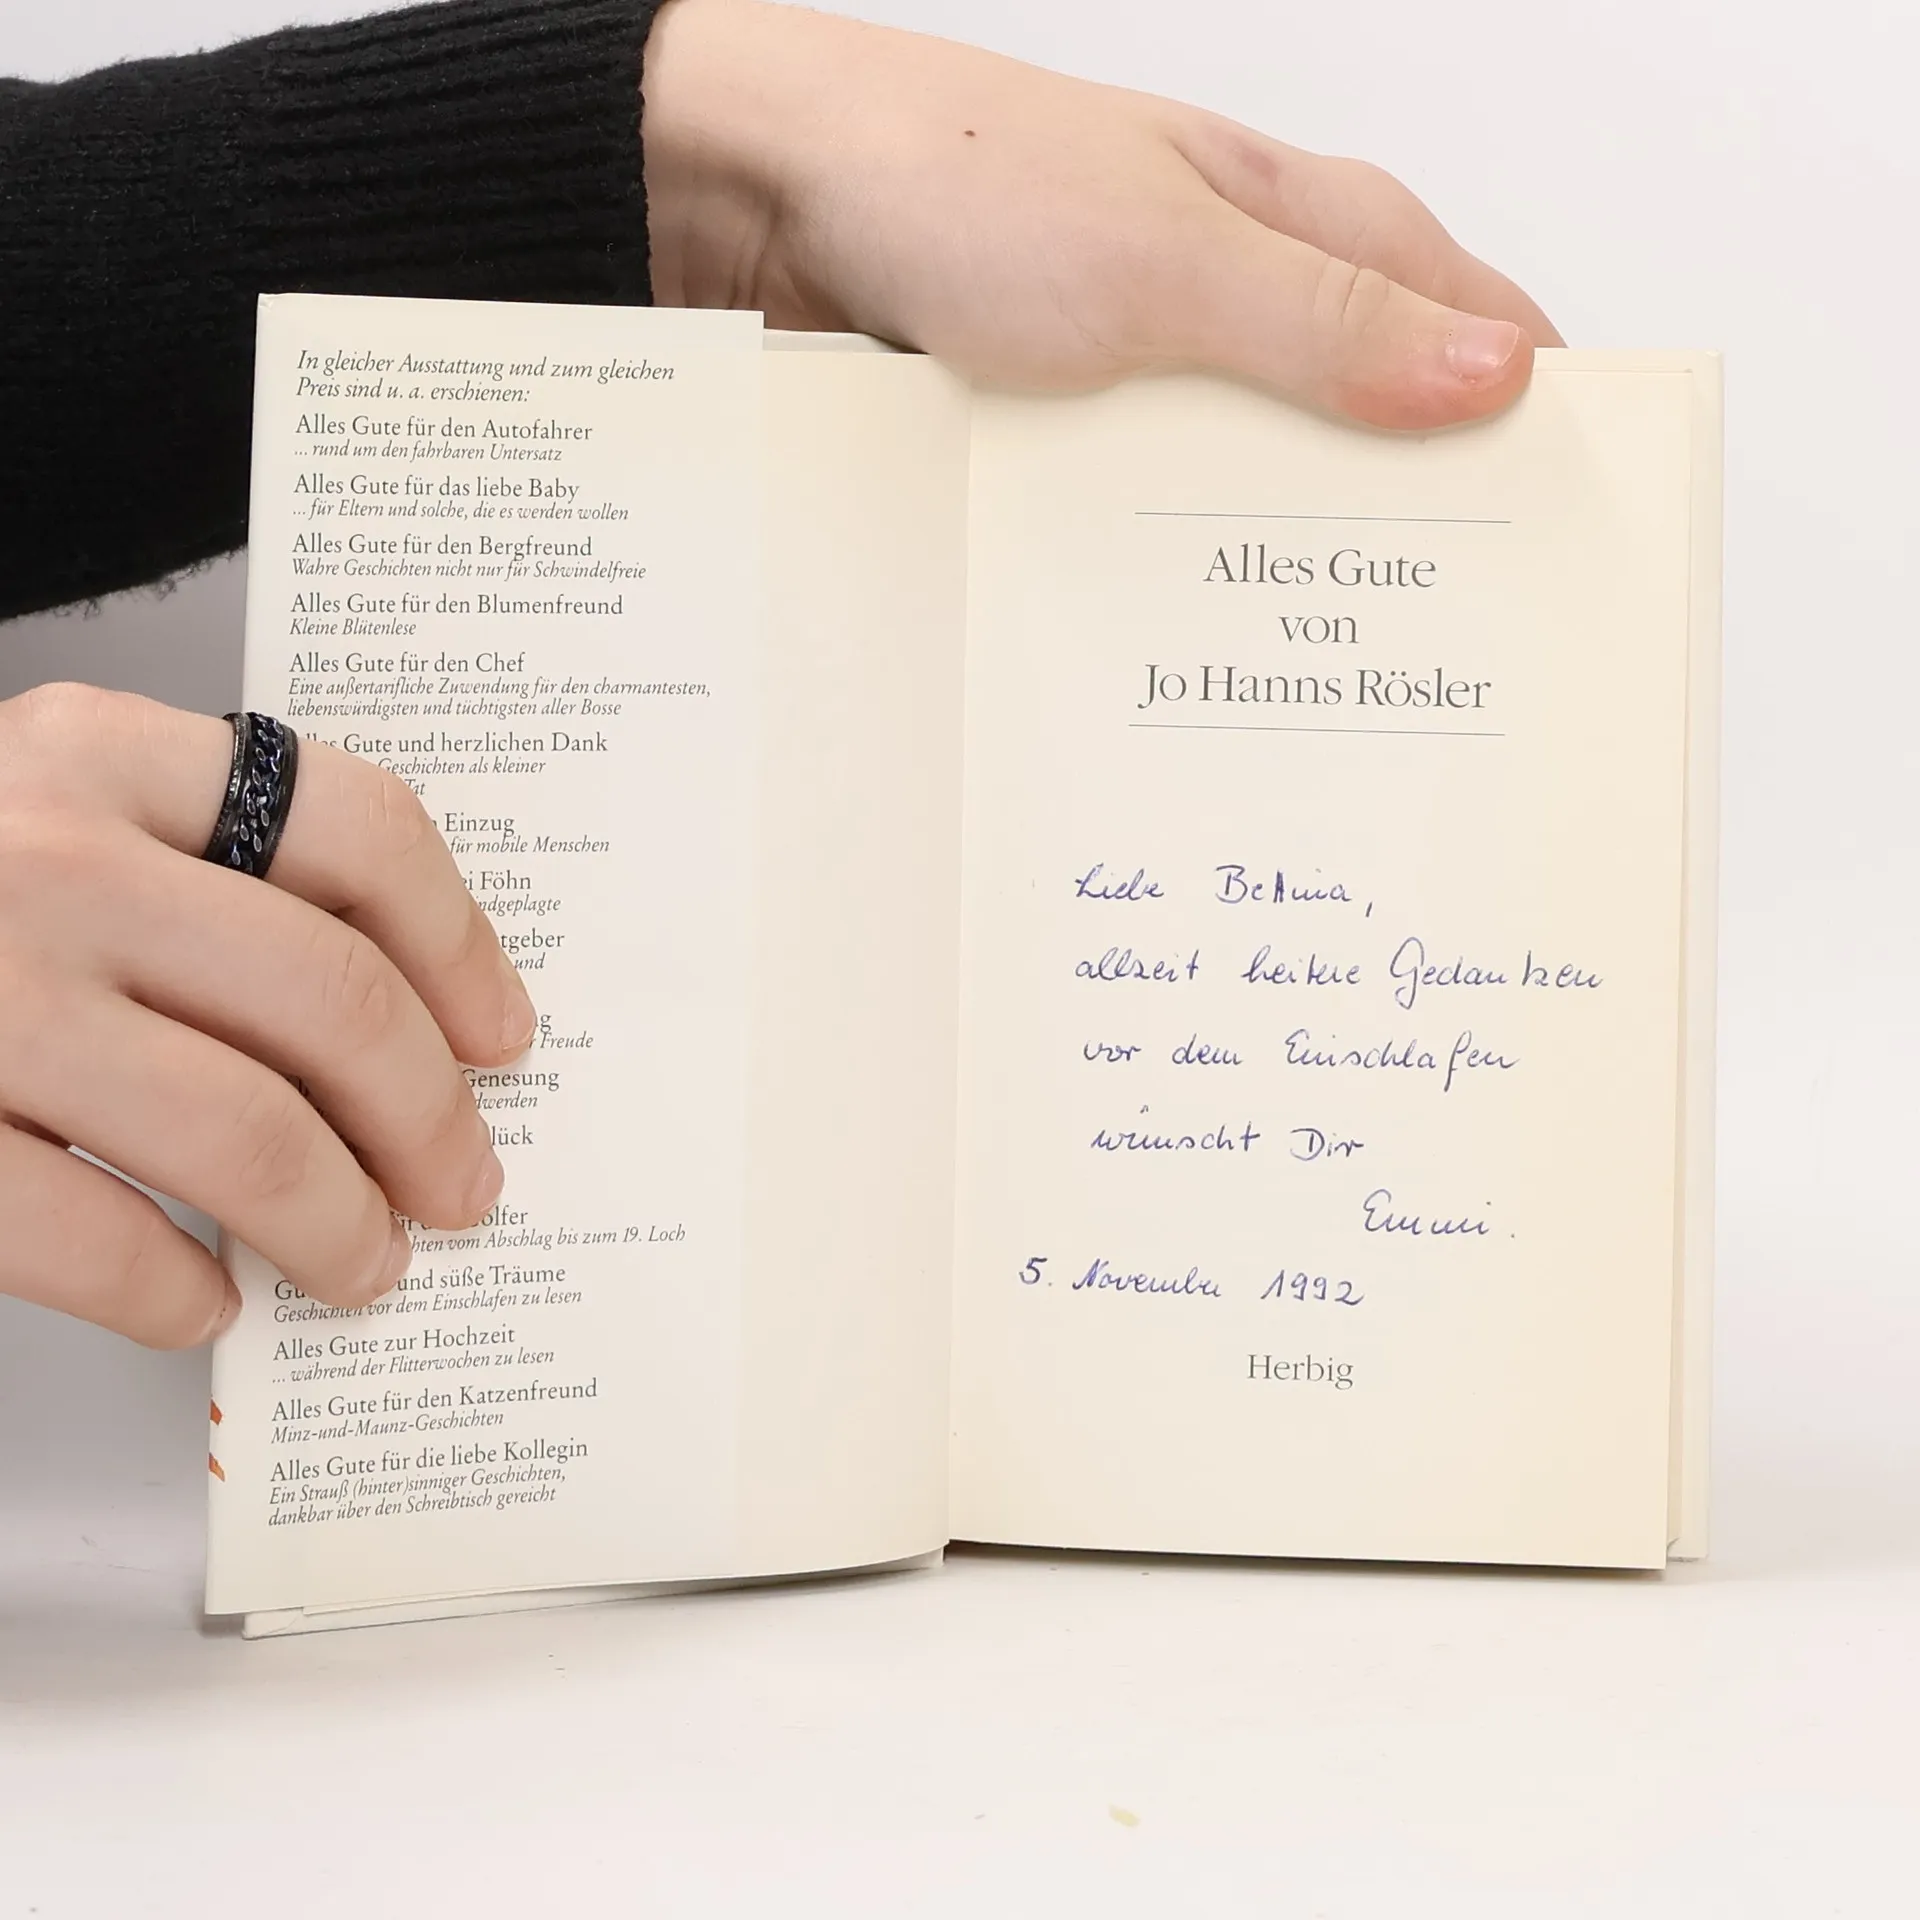 In gleicher Ausstattung und zum gleichen
Preis sind u. a. erschienen:
Alles Gute für den Autofahrer
... rund um den fahrbaren Untersatz
Alles Gute für das liebe Baby
... für Eltern und solche, die es werden wollen
Alles Gute für den Bergfreund
Wahre Geschichten nicht nur für Schwindelfreie
Alles Gute für den Blumenfreund
Kleine Blütenlese
Alles Gute für den Chef
Eine außertarifliche Zuwendung für den charmantesten,
liebenswürdigsten und tüchtigsten aller Bosse
Gute und herzlichen Dank
Geschichten als kleiner
Tat
Einzug
für mobile Menschen
Föhn
und
Freude
Genesung
vom Abschlag bis zum 19. Loch
und süße Träume
Geschichten vor dem Einschlafen zu lesen
Alles Gute zur Hochzeit
... während der Flitterwochen zu lesen
Alles Gute für den Katzenfreund
Minz-und-Maunz-Geschichten
Alles Gute für die liebe Kollegin
Ein Strauß (hinter)sinniger Geschichten,
dankbar über den Schreibtisch gereicht
Alles Gute
von
Jo Hanns Rösler
Liebe Bettina,
allzeit heitere Gedanken
vor dem Einschlafen
wünscht Dir
Emmi.
5. November 1992
Herbig